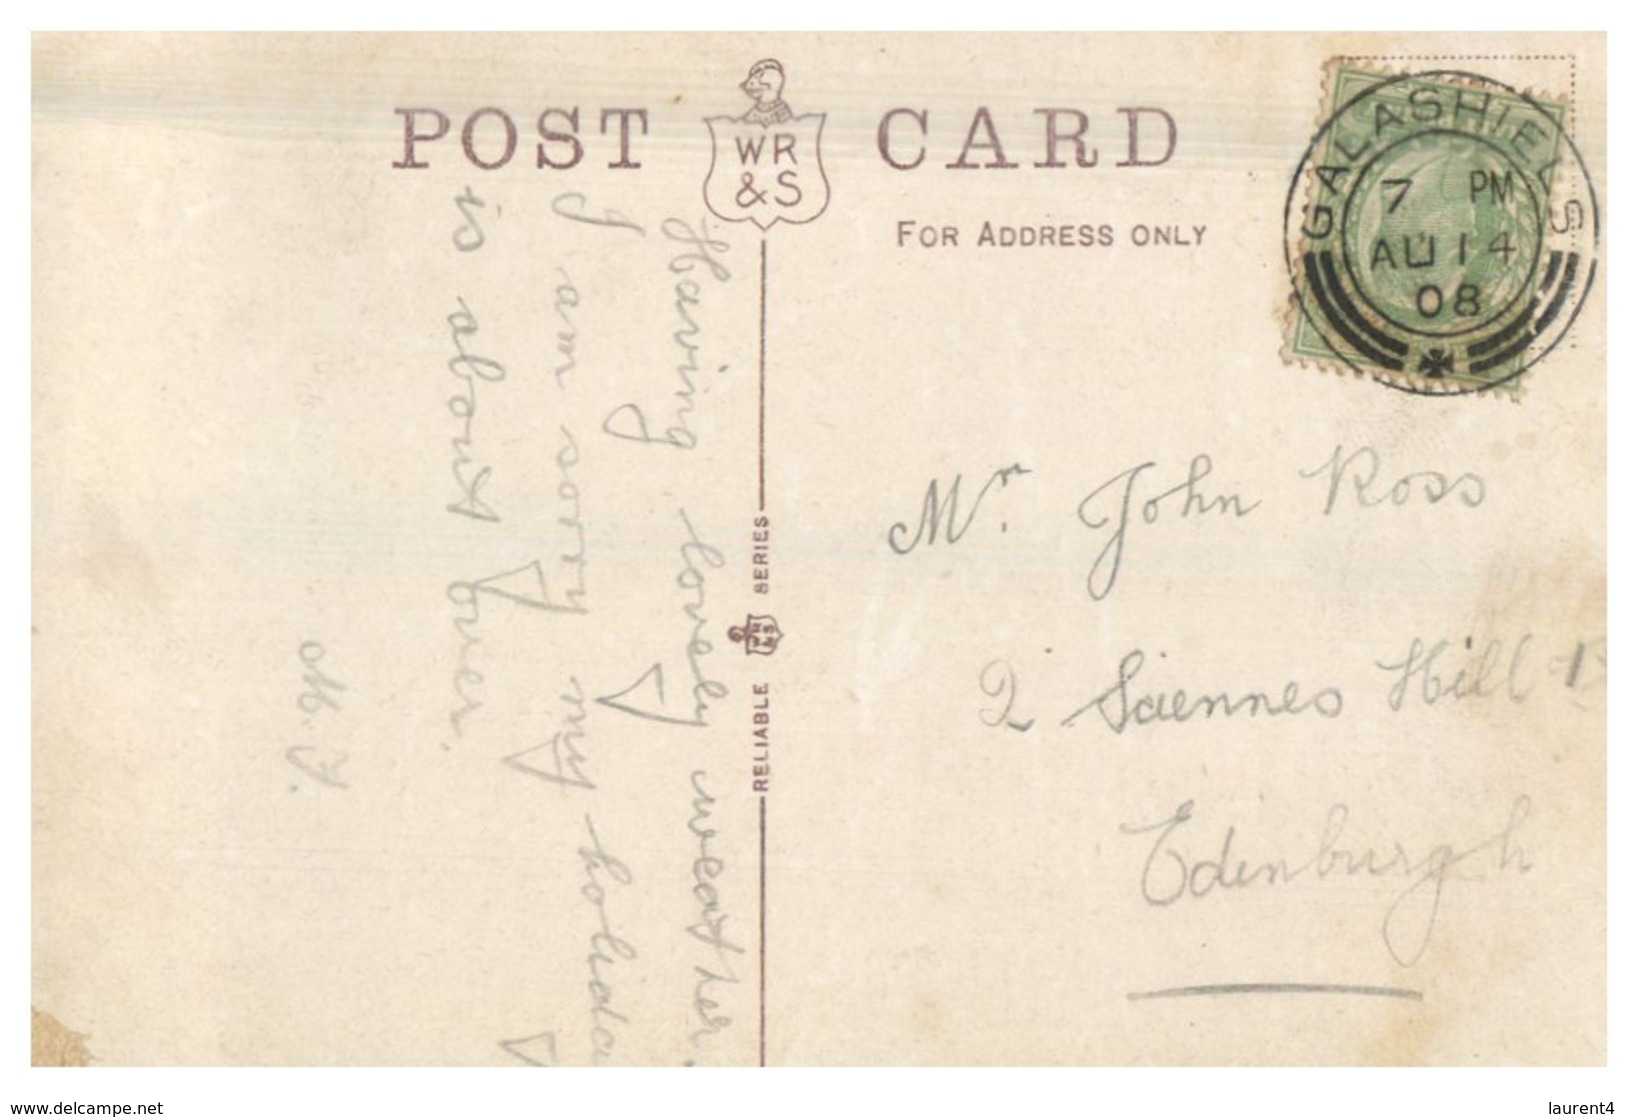 POST CARD
WR
&S
FOR ADDRESS ONLY
GALASHIELS
7 PM
AU 14
08
Having lovely weather.
I am sorry my holiday
is about over.
M. J.
RELIABLE WR&S SERIES
Mr. John Ross
2 Sciennes Hill
Edinburgh
www.delcampe.net
laurent4